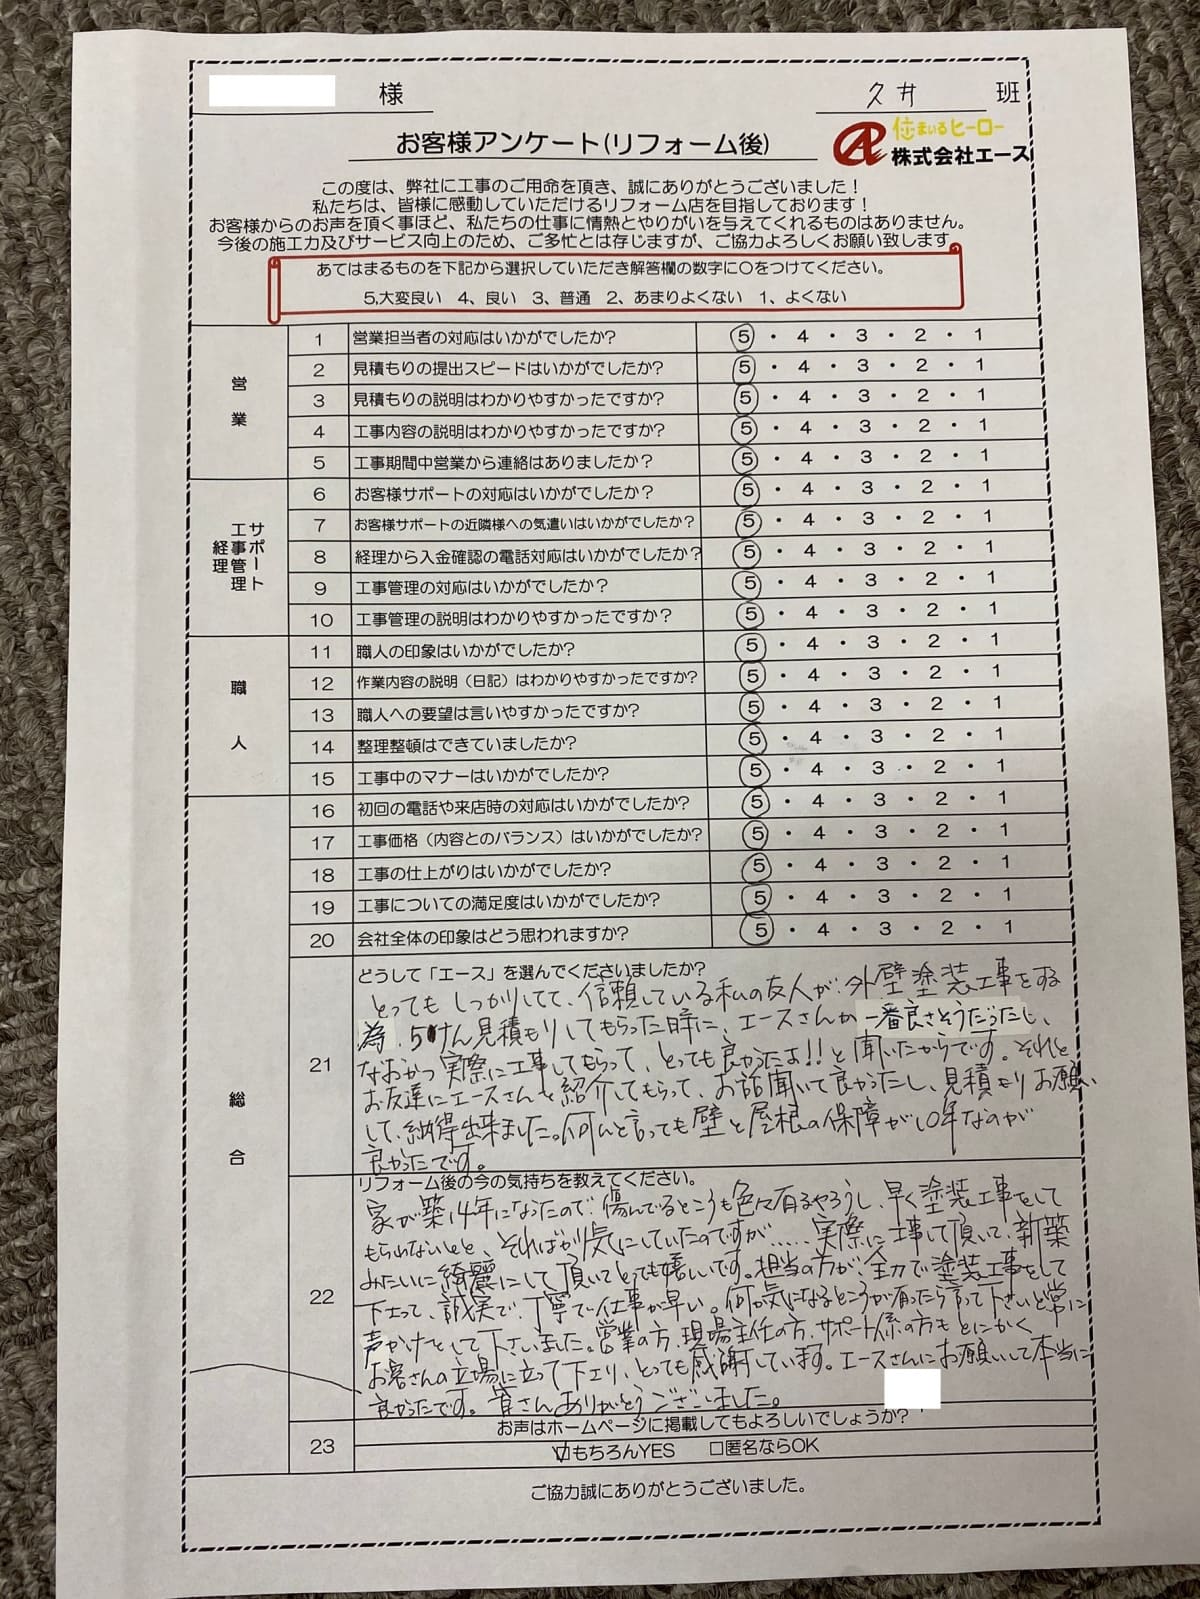 様
久井 班
お客様アンケート(リフォーム後)
住まいるヒーロー
株式会社エース
この度は、弊社に工事のご用命を頂き、誠にありがとうございました!
私たちは、皆様に感動していただけるリフォーム店を目指しております!
お客様からのお声を頂く事ほど、私たちの仕事に情熱とやりがいを与えてくれるものはありません。
今後の施工力及びサービス向上のため、ご多忙とは存じますが、ご協力よろしくお願い致します。
あてはまるものを下記から選択していただき解答欄の数字に〇をつけてください。
5,大変良い 4、良い 3、普通 2、あまりよくない 1、よくない
営業
1 営業担当者の対応はいかがでしたか? 5・4・3・2・1
2 見積もりの提出スピードはいかがでしたか? 5・4・3・2・1
3 見積もりの説明はわかりやすかったですか? 5・4・3・2・1
4 工事内容の説明はわかりやすかったですか? 5・4・3・2・1
5 工事期間中営業から連絡はありましたか? 5・4・3・2・1
サポート
工事管理
経理
6 お客様サポートの対応はいかがでしたか? 5・4・3・2・1
7 お客様サポートの近隣様への気遣いはいかがでしたか? 5・4・3・2・1
8 経理から入金確認の電話対応はいかがでしたか? 5・4・3・2・1
9 工事管理の対応はいかがでしたか? 5・4・3・2・1
10 工事管理の説明はわかりやすかったですか? 5・4・3・2・1
職人
11 職人の印象はいかがでしたか? 5・4・3・2・1
12 作業内容の説明(日記)はわかりやすかったですか? 5・4・3・2・1
13 職人への要望は言いやすかったですか? 5・4・3・2・1
14 整理整頓はできていましたか? 5・4・3・2・1
15 工事中のマナーはいかがでしたか? 5・4・3・2・1
総合
16 初回の電話や来店時の対応はいかがでしたか? 5・4・3・2・1
17 工事価格(内容とのバランス)はいかがでしたか? 5・4・3・2・1
18 工事の仕上がりはいかがでしたか? 5・4・3・2・1
19 工事についての満足度はいかがでしたか? 5・4・3・2・1
20 会社全体の印象はどう思われますか? 5・4・3・2・1
21 どうして「エース」を選んでくださいましたか?
とってもしっかりしてて、信頼している私の友人が、外壁塗装工事をする
為、5けん見積もりしてもらった時に、エースさんが一番良さそうだったし、
なおかつ実際に工事してもらって、とっても良かったよ!!と聞いたからです。それと
お友達にエースさんを紹介してもらって、お話聞いて良かったし、見積もりお願い
して、納得出来ました。何んと言っても壁と屋根の保障が10年なのが
良かったです。
22 リフォーム後の今の気持ちを教えてください。
家が築14年になったので、傷んでるところも色々有るやろうし、早く塗装工事をして
もらわないとと、そればかり気にしていたのですが……実際に工事して頂いて、新築
みたいに綺麗にして頂いてとっても嬉しいです。担当の方が、全力で塗装工事をして
下さって、誠実で、丁寧で仕事が早い。何か気になるところが有ったら言って下さいと常に
声かけをして下さいました。営業の方、現場主任の方、サポート係の方もとにかく
お客さんの立場に立って下さり、とっても感謝しています。エースさんにお願いして本当に
良かったです。皆さんありがとうございました。
23 お声はホームページに掲載してもよろしいでしょうか?
☑もちろんYES □匿名ならOK
ご協力誠にありがとうございました。